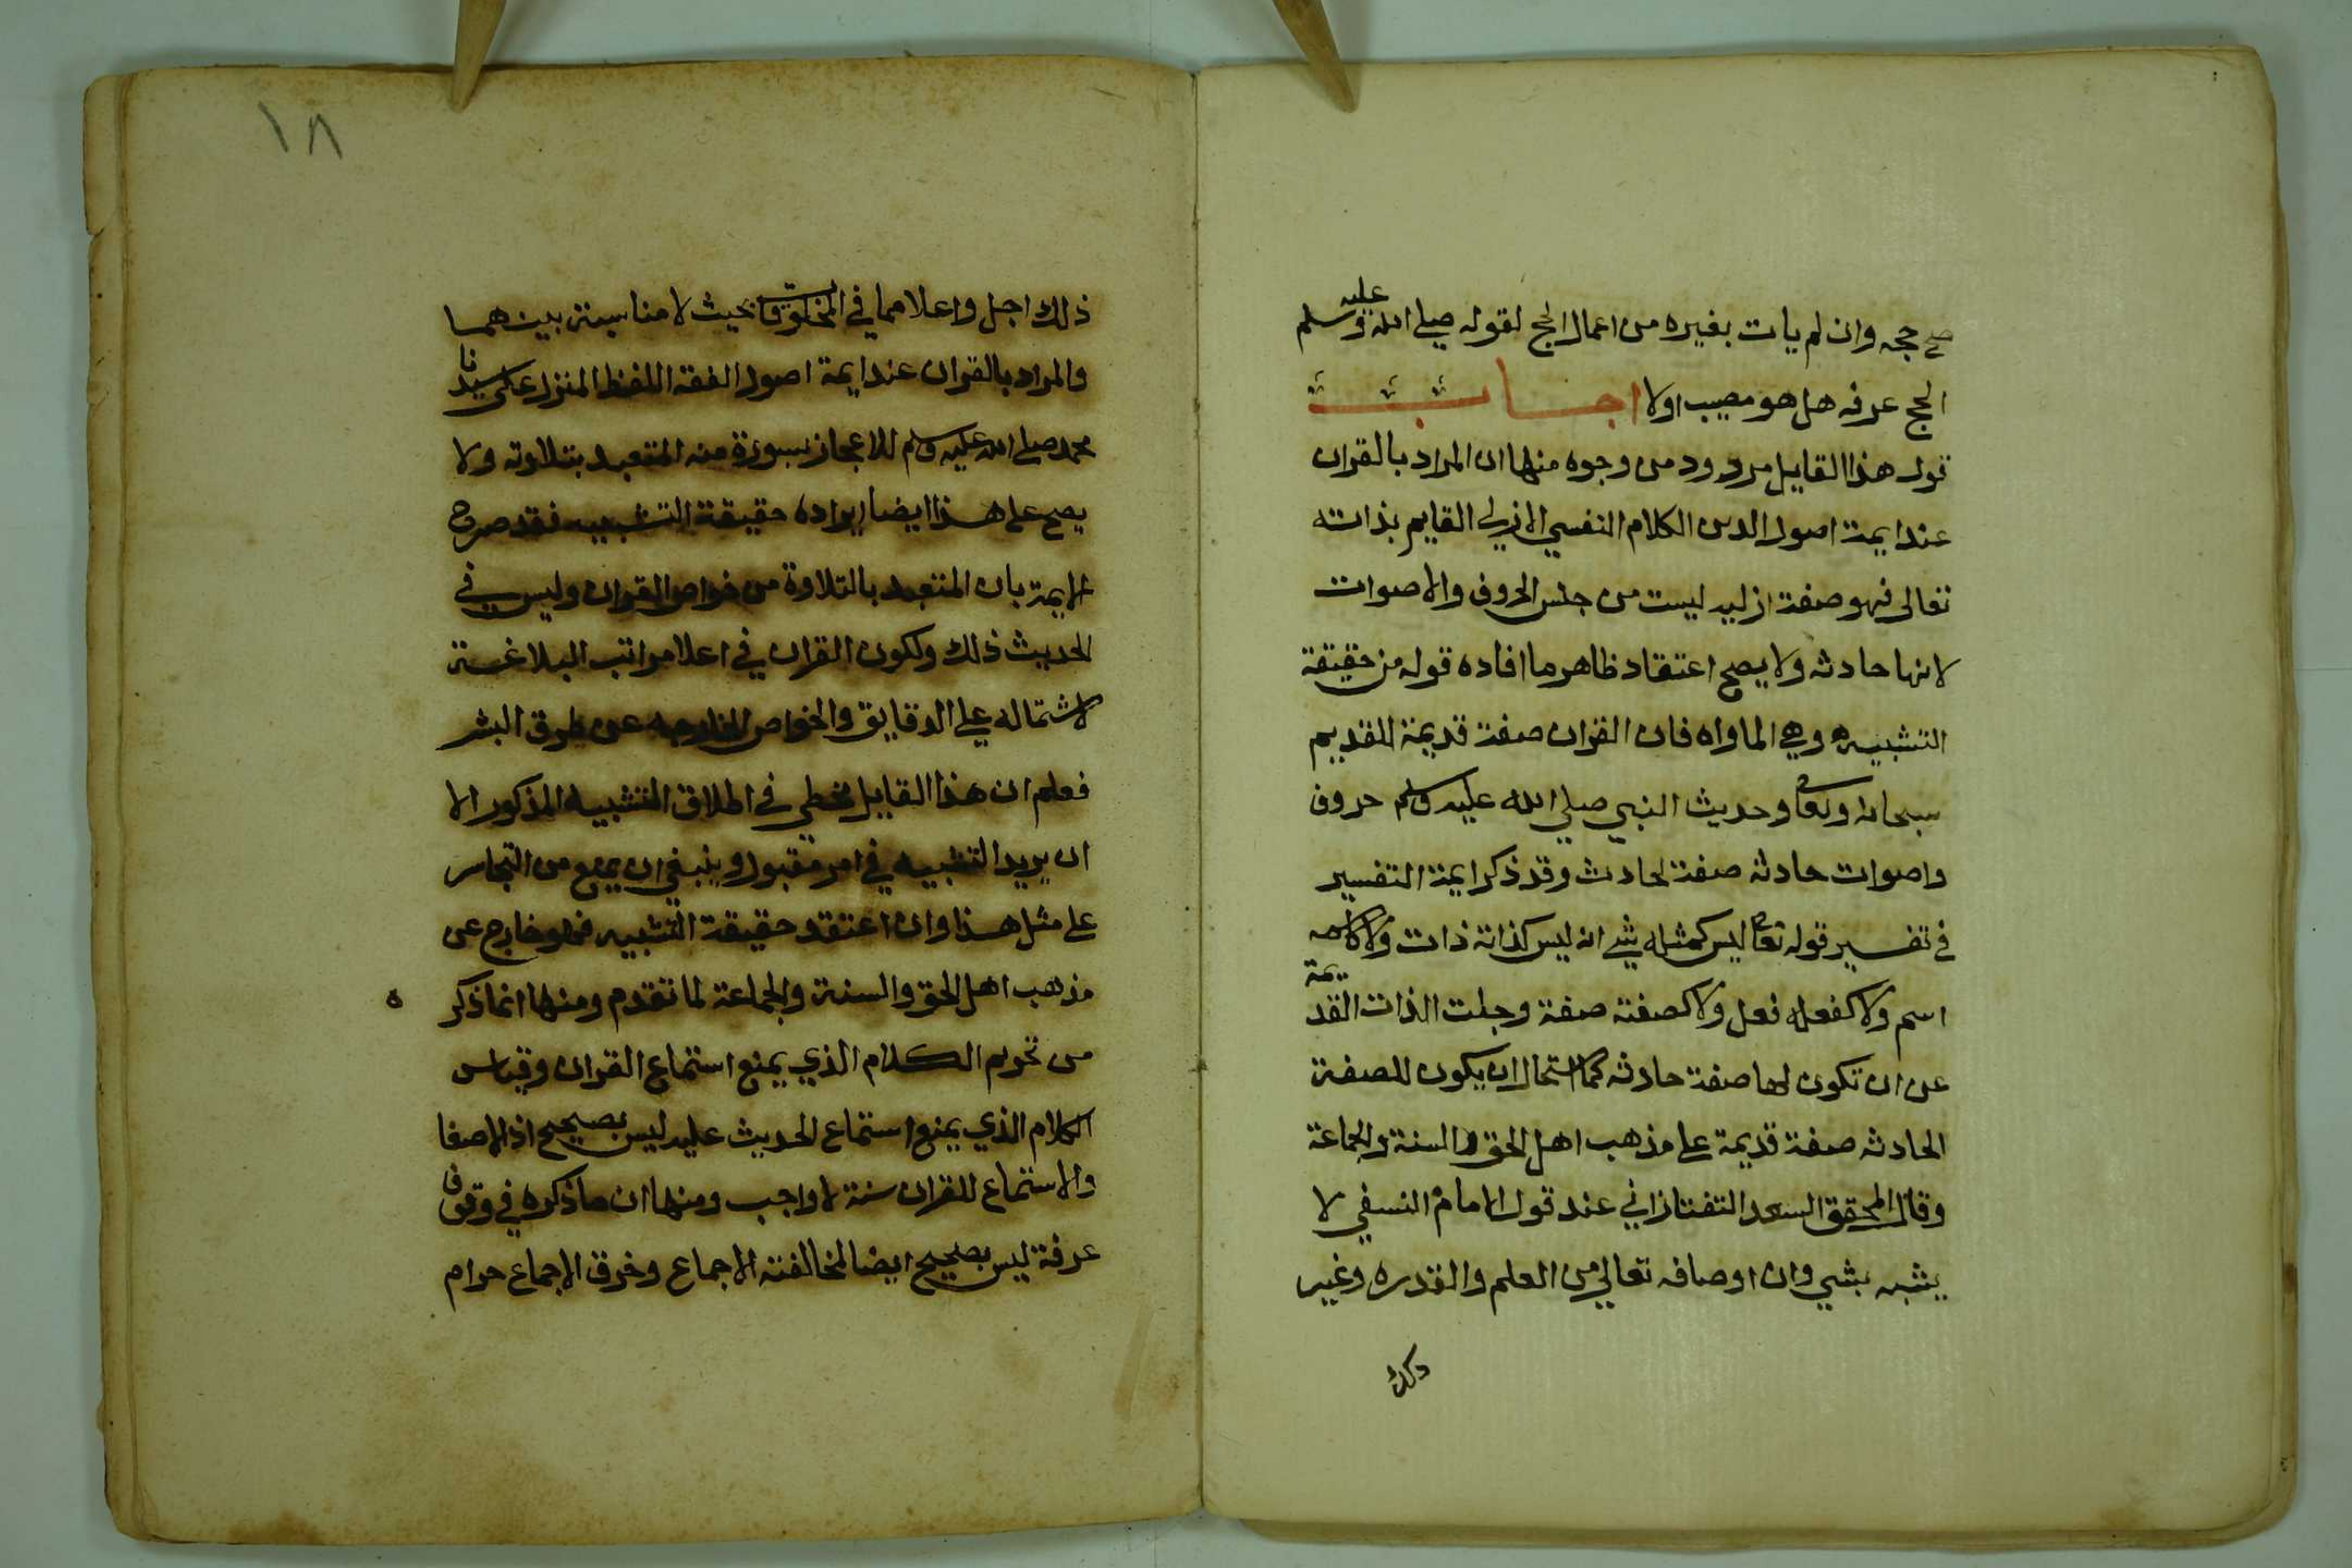 صح حجه وان لم يات بغيره من اعمال الحج لقوله صلي الله عليه وسلم
الحج عرفه هل هو مصيب اولا اجابت
قول هذا القايل مردود من وجوه منها ان المراد بالقران
عند ايمة اصول الدين الكلام النفسي الازلي القايم بذاته
تعالى فهو صفة ازليه ليست من جنس الحروف والاصوات
لانها حادثه ولا يصح اعتقاد ظاهر ما افاده قوله من حقيقة
التشبيه وهي الماواه فان القران صفة قديمة للقديم
سبحانه وتعالى وحديث النبي صلي الله عليه وسلم حروف
واصوات حادثه صفة لحادث وقد ذكر ايمة التفسير
في تفسير قوله تعالى ليس كمثله شي انه ليس كذاته ذات ولا كاسمه
اسم ولا كفعله فعل ولا كصفته صفة وجلت الذات القديمة
عن ان تكون لها صفة حادثه كما استحال ان يكون للصفة
الحادثه صفة قديمة على مذهب اهل الحق والسنة والجماعة
وقال المحقق السعد التفتازاني عند قول الامام النسفي لا
يشبه بشي وان اوصافه تعالي من العلم والقدره وغير
ذلك
١٨
ذلك اجل واعلا مما في المخلوقات بحيث لا مناسبة بينهما
والمراد بالقران عند ايمة اصول الفقه اللفظ المنزل على سيدنا
محمد صلي الله عليه وسلم للاعجاز بسورة منه المتعبد بتلاوته ولا
يصح على هذا ايضا ايراده حقيقة التشبيه فقد صرح
الايمة بان المتعبد بالتلاوة من خواص القران وليس في
الحديث ذلك ولكون القران في اعلا مراتب البلاغة
لاشتماله علي الدقايق والخواص الخارجه عن طرق البشر
فعلم ان هذا القايل مخطي في اطلاق التشبيه المذكور الا
ان يريد التشبيه في امر مقبول وينبغي ان يمنع من التجاسر
على مثل هذا وان اعتقد حقيقة التشبيه فهو خارج عن
مذهب اهل الحق والسنة والجماعة لما تقدم ومنها انما ذكر ه
من تحريم الكلام الذي يمنع استماع القران وقياس
الكلام الذي يمنع استماع الحديث عليه ليس بصحيح اذ الاصغا
والاستماع للقران سنة لا واجب ومنها ان ما ذكره في وقوف
عرفة ليس بصحيح ايضا لمخالفته الاجماع وخرق الاجماع حرام